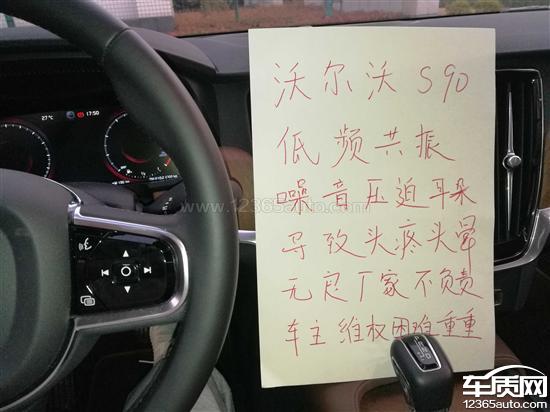 27°C
17:50
沃尔沃 S90
低频共振
噪音压迫耳朵
导致头疼头晕
无良厂家不负责
车主维权困难重重
www.12365auto.com
车质网
12365auto.com